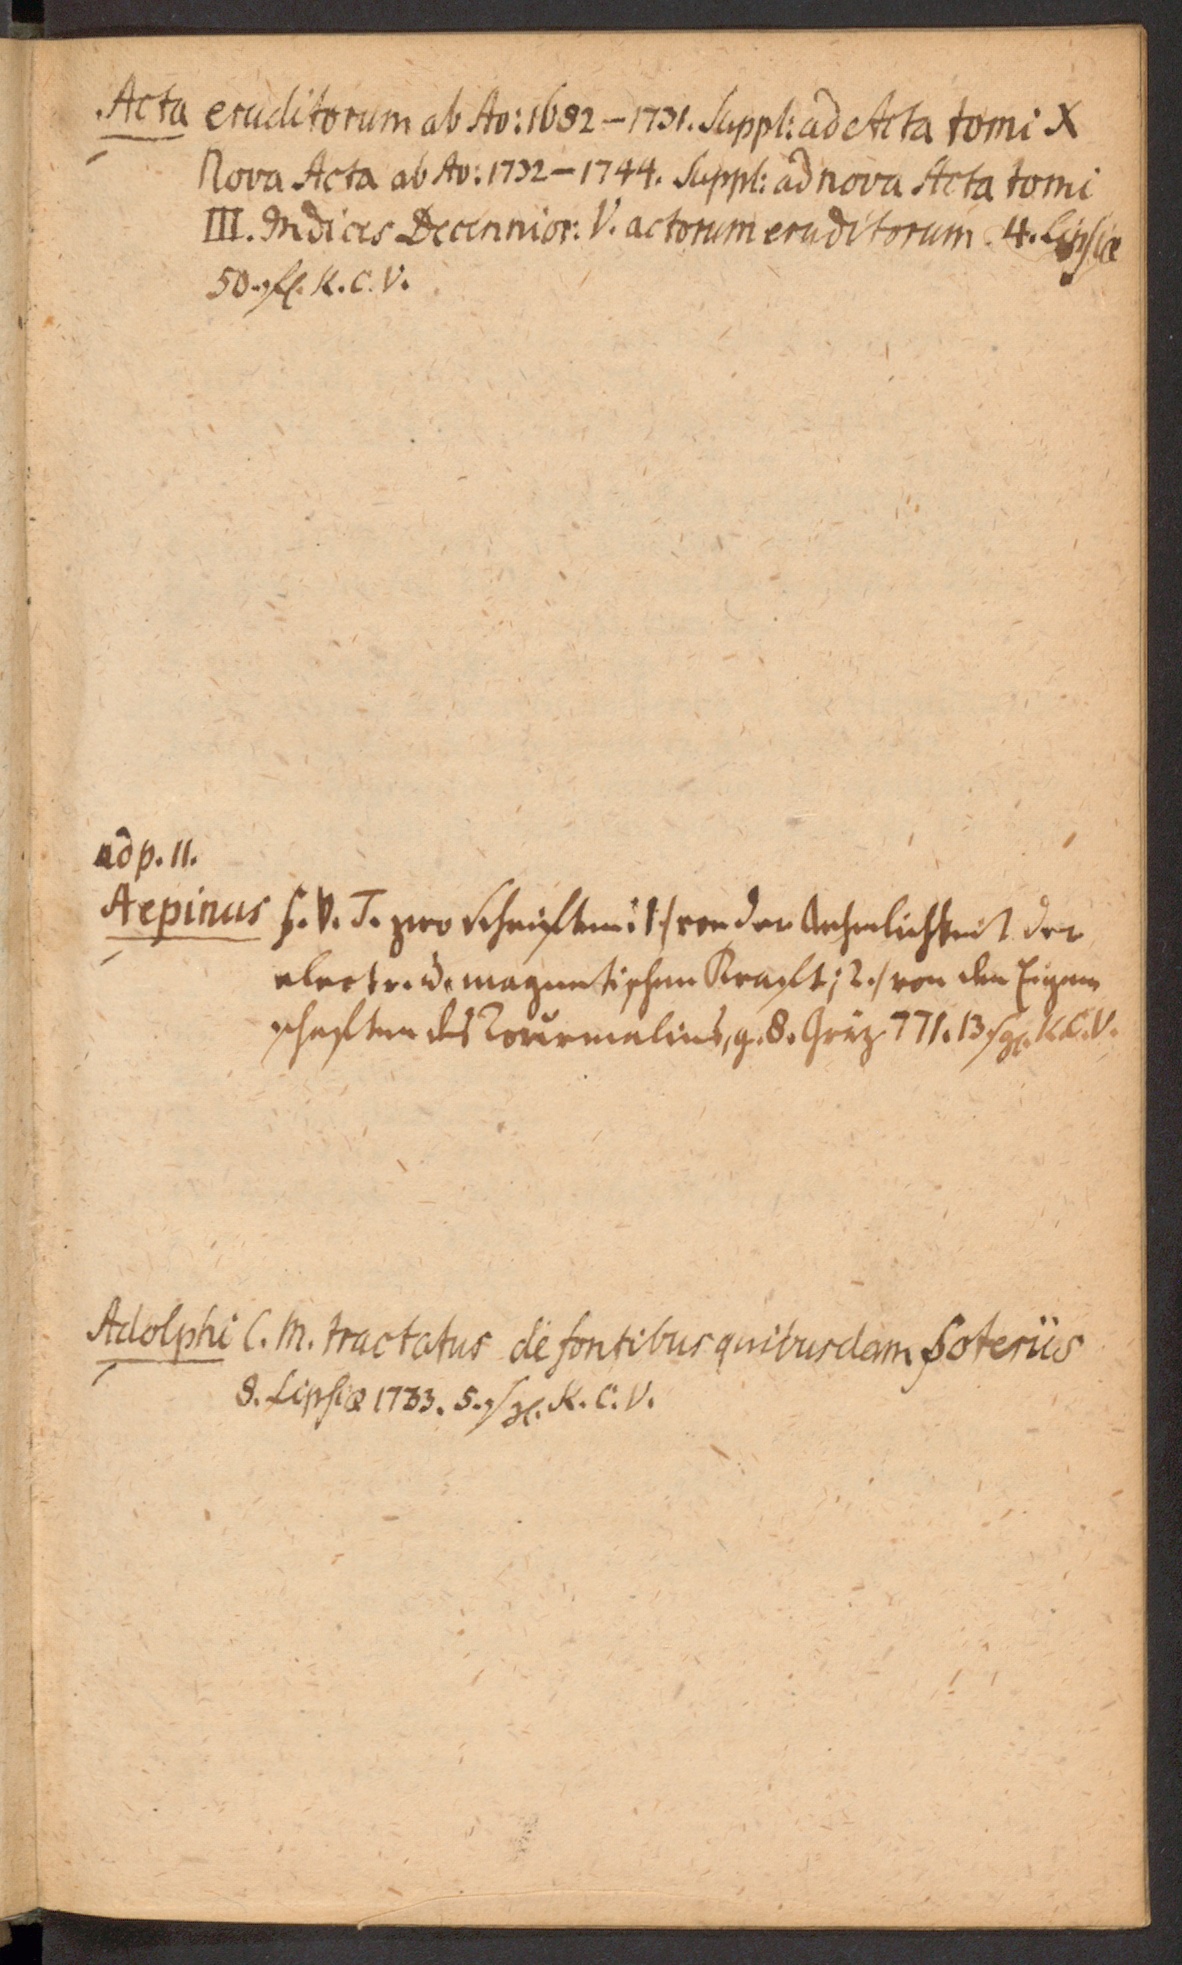 Acta eruditorum ab Ao: 1682–1731. Suppl: ad Acta tomi X
Nova Acta ab Ao: 1732–1744. Suppl: ad nova Acta tomi
III. Indices Decennior: V. actorum eruditorum. 4. Lipsiæ
50. fl. K. C. V.
ad p. 11.
Aepinus F. V. T. zwo Schriften: 1./ von der Aehnlichkeit der
electr. u. magnetischen Kraft; 2./ von den Eigen
schaften des Tourmalins, g. 8. Gräz 771. 13 sgl. K.C.V.
Adolphi C. M. tractatus de fontibus quibusdam Soteriis
8. Lipsiæ 1733. 5. sgl. K. C. V.